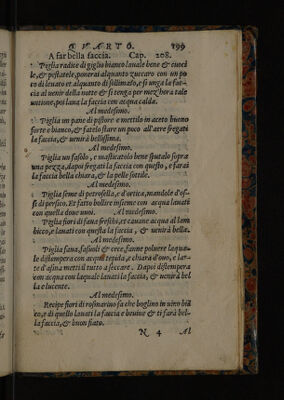 QVARTO. 199
A far bella faccia. Cap. 208.
Piglia radice di giglio bianco lauale bene & cuoci
le, & pestatele, ponerai alquanto zuccaro con un po
co di leuato et alquanto di sollimato, e si unga la fac-
cia al uenir della notte & si tenga per mez'hora tale
untione, poi laua la faccia con acqua calda.
Al medesimo.
Piglia un pane di pistore e mettilo in aceto bueno
forte e bianco, & fatelo stare un poco all'aere fregati
la faccia, & uenirà bellissima.
Al medesimo.
Piglia un fasolo, e masticatolo bene sputalo sopra
una pezza, dapoi fregati la faccia con questo, e farà
la faccia bella chiara, & la pelle sottile.
Al medesimo.
Piglia seme di petrosello, e d'ortica, mandole d'of-
si di persico. Et fatto bollire insieme con acqua lauati
con quella doue uuoi. Al medesimo.
Piglia fiori di faua freschi, et cauane acqua al lam
bicco, e lauati con questa la faccia, & uenirà bella.
Al medesimo.
Piglia faua, fasuoli & cece, fanne poluere laqua-
le distempera con acqua tepida, e chiara d'ouo, e lat-
te d'asina metti il tutto a seccare. Dapoi distempera
con acqua con laquale lauati la faccia, & uenirà bel
la e lucente.
Al medesimo.
Recipe fiori di rosmarino fa che boglino in uino bian
co, e di quello lauati la faccia e beuine & ti farà bel-
la faccia, & buon fiato.
N 4 Al